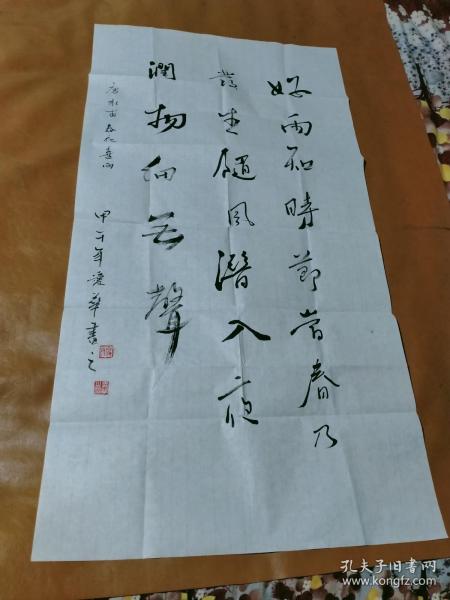 好雨知時節當春乃
發生隨風潛入夜
潤物細無聲
唐 杜甫 春夜喜雨
甲午年 華書之
孔夫子旧书网
www.kongfz.com